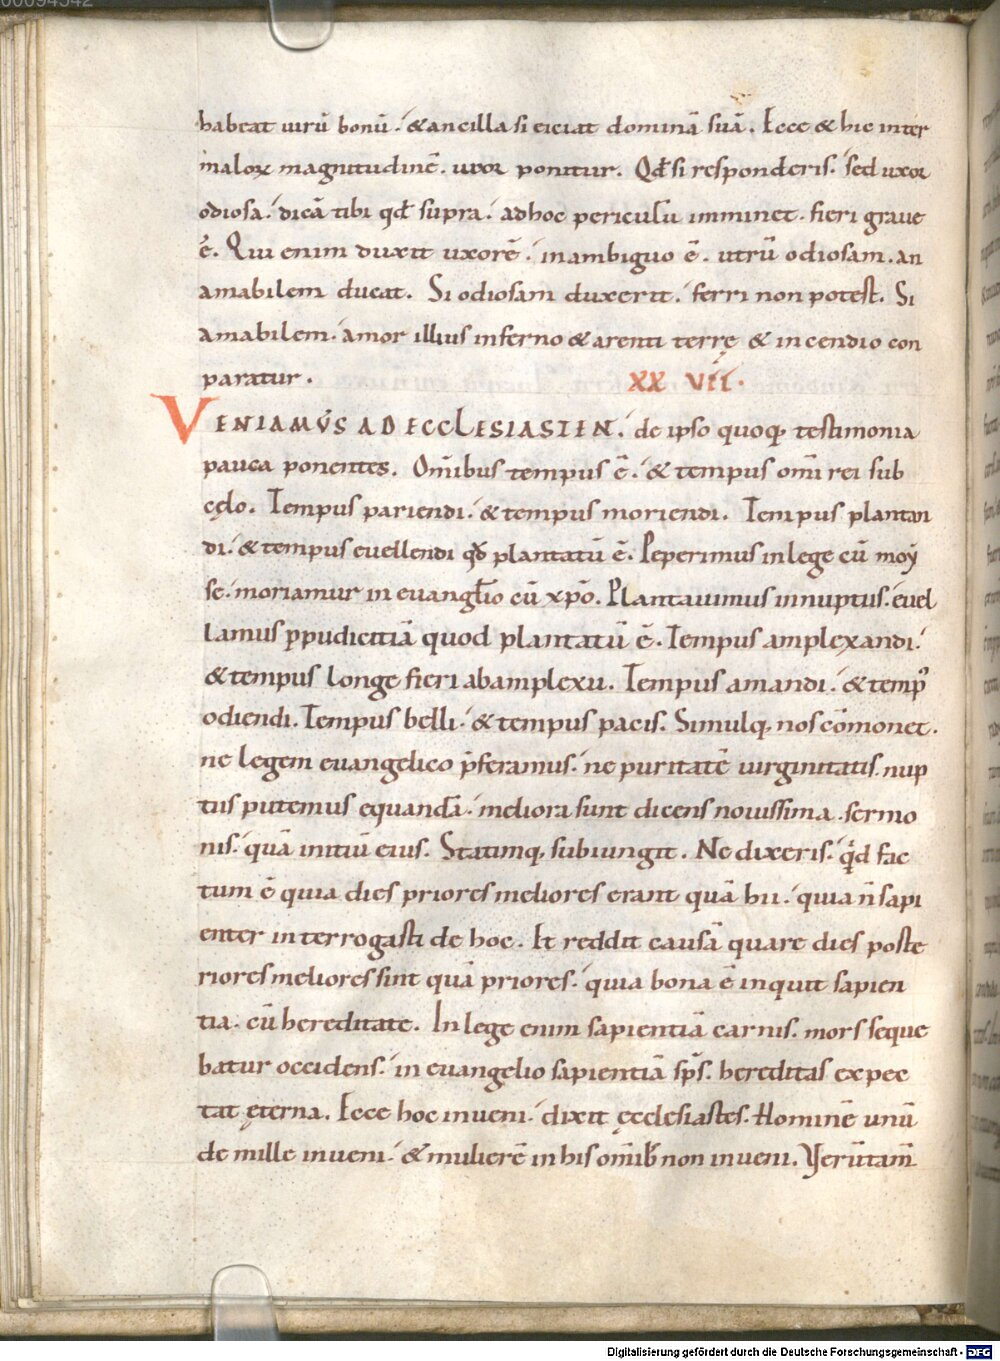 habeat uirū bonū. &ancilla si eiciat dominā suā. Ecce & hic inter
malorū magnitudinē. uxor ponitur. Qđ si responderis. sed uxor
odiosa. dicā tibi qđ supra. adhoc periculū imminet. fieri graue
ē. Qui enim duxit uxorē. inambiguo ē. utrū odiosam. an
amabilem ducat. Si odiosam duxerit. ferri non potest. Si
amabilem. amor illius inferno & arenti terrę & incendio con
paratur. XXVII.
VENIAMUS AD ECCLESIASTEN. de ipso quoq; testimonia
pauca ponentes. Omībus tempus ē. & tempus omī rei sub
cęlo. Tempus pariendi. & tempus moriendi. Tempus plantan
di. & tempus euellendi qđ plantatū ē. Peperimus inlege cū moy
se. moriamur in euangłio cū xp̄o. Plantauimus innuptus. euel
lamus ꝑpudicitiā quod plantatū ē. Tempus amplexandi.
& tempus longe fieri abamplexu. Tempus amandi. & temp᾽
odiendi. Tempus belli. & tempus pacis. Simulq; nos cōmonet.
ne legem euangelico p̄feramus. ne puritatē uirginitatis. nup
tiis putemus equandā. meliora sunt dicens nouissima sermo
nis. quā initiū eius. Statimq; subiungit. Ne dixeris. qđ fac
tum ē quia dies priores meliores erant quā hii. quia n̄ sapi
enter interrogasti de hoc. Et reddit causā quare dies poste
riores meliores sint quā priores. quia bona ē inquit sapien
tia. cū hereditate. In lege enim sapientiā carnis. mors seque
batur occidens. in euangelio sapientiā sp̄s. hereditas expec
tat ęterna. Ecce hoc inueni. dixit ęcclesiastes. Hominē unū
de mille inueni. & mulierē in his omīb; non inueni. Uerūtam̄
Digitalisierung gefördert durch die Deutsche Forschungsgemeinschaft - DFG